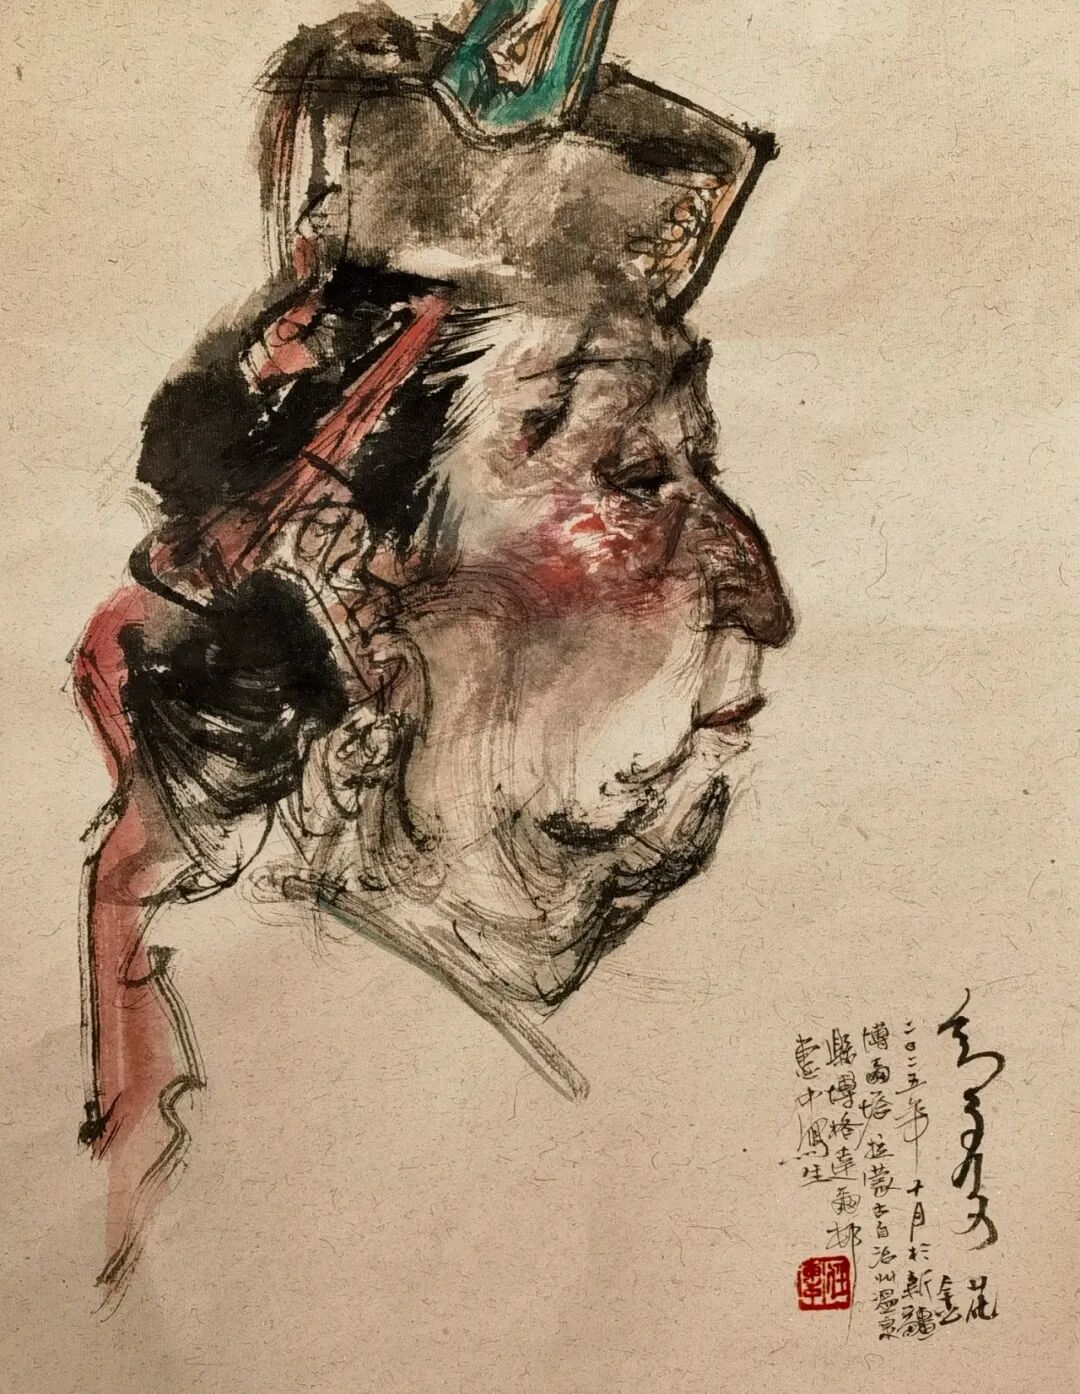 金花
二〇二五年十月於新疆
博爾塔拉蒙古自治州溫泉
縣博格達爾邨
惠中寫生
任惠中